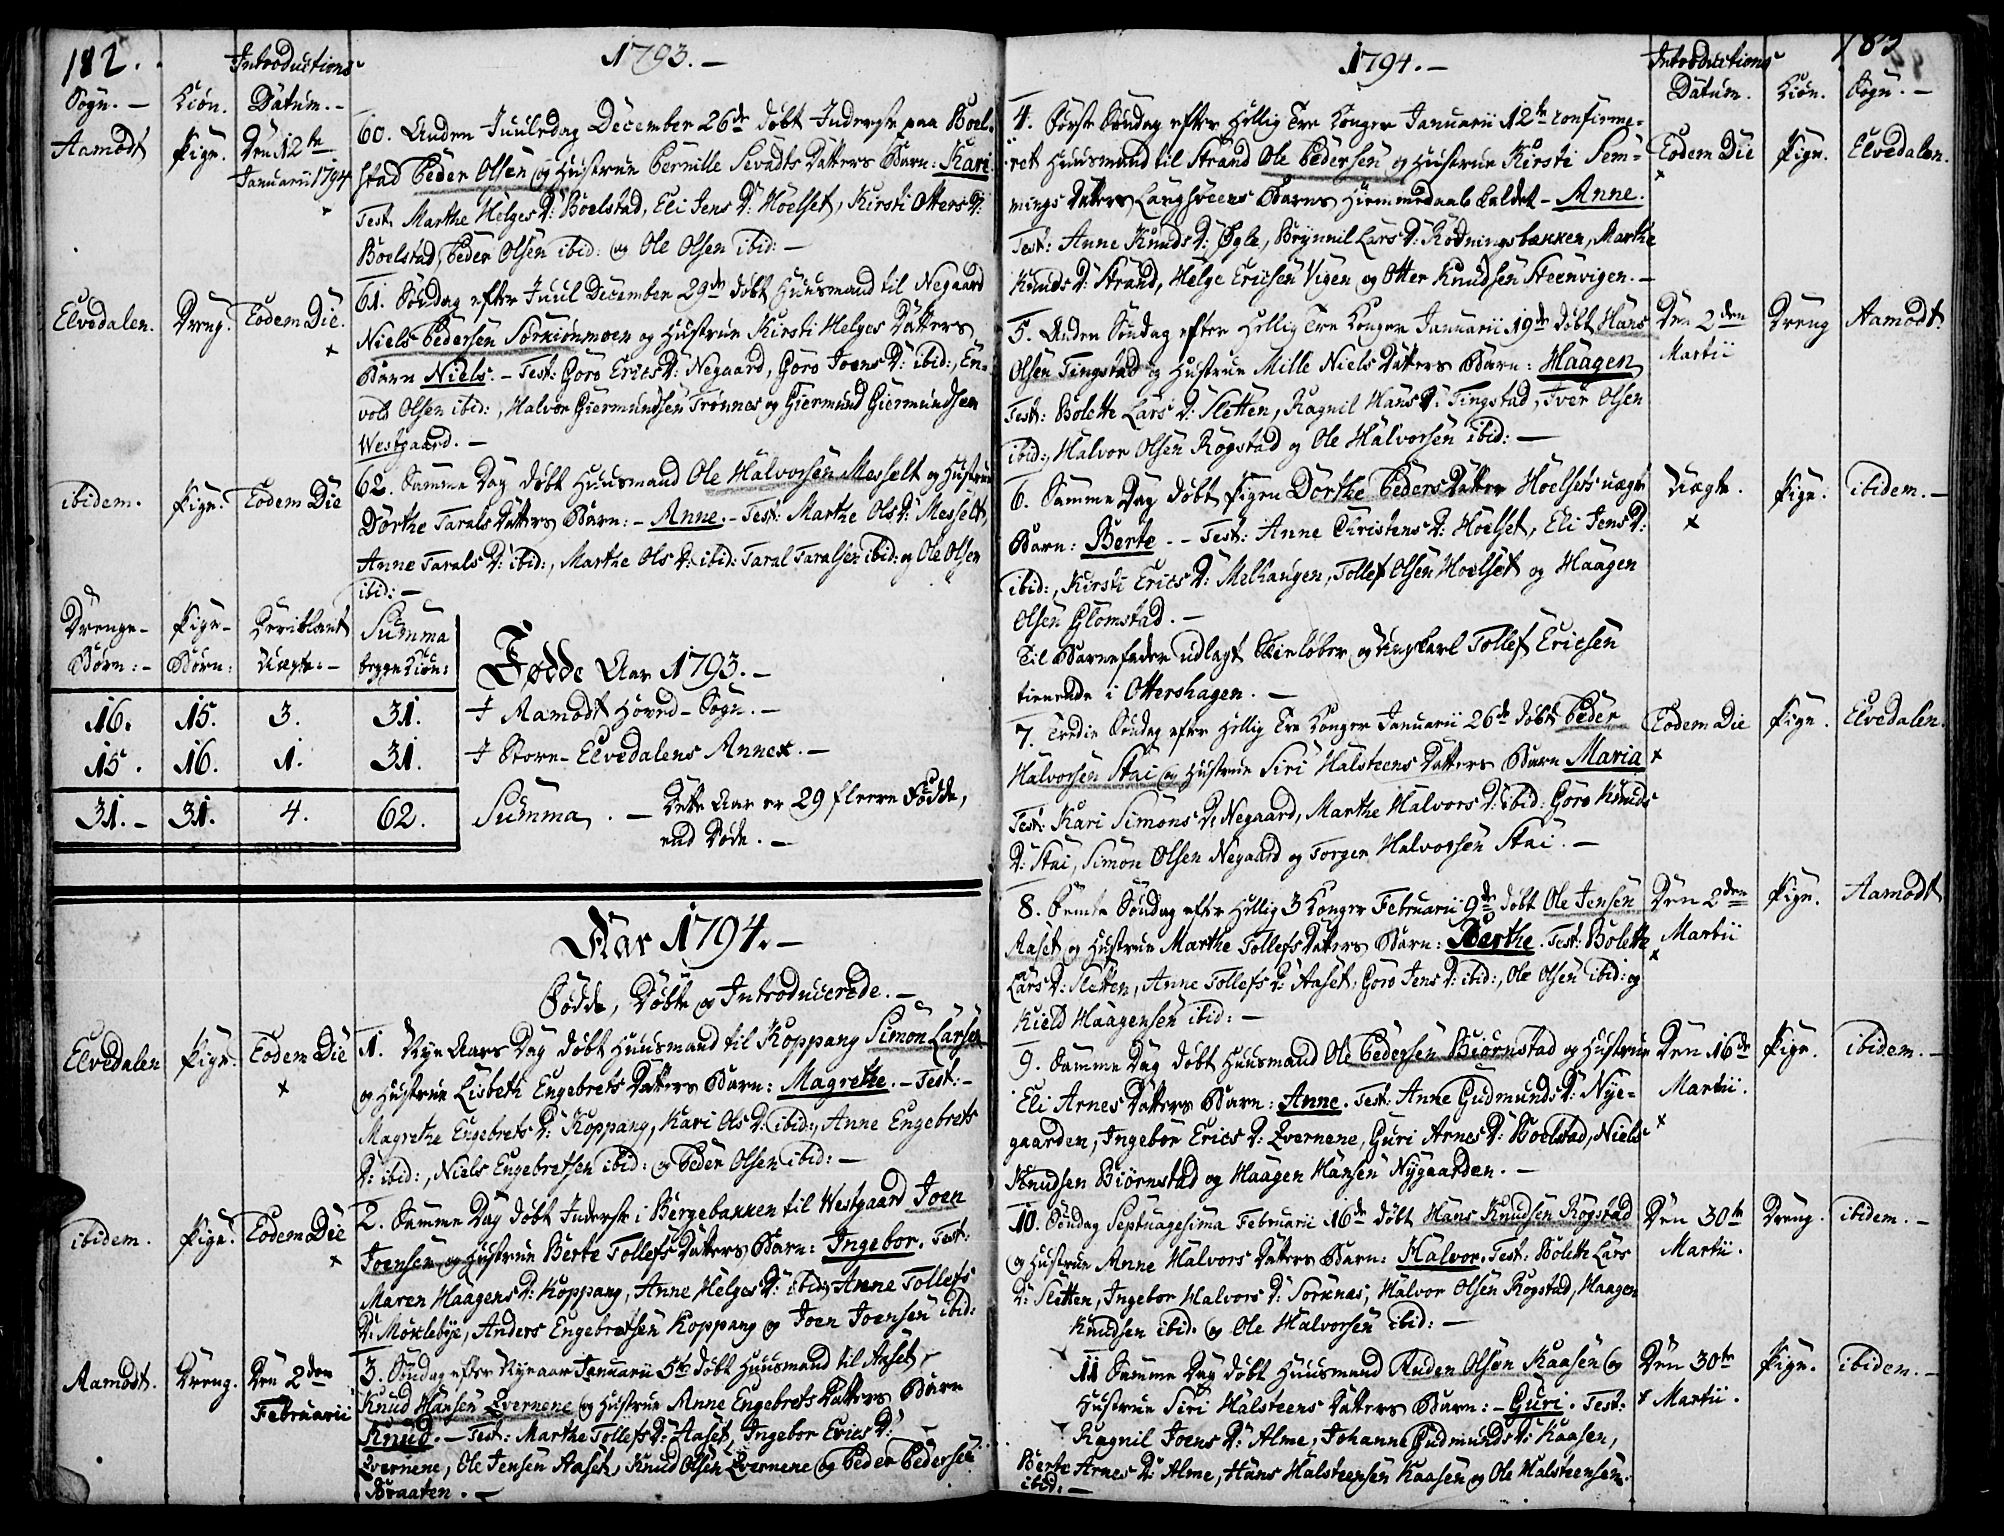 182.
Introductions
1793. -
Sogn. - Kiön. Datum. -
Aamodt Pige. Den 12te Januarii 1794
60. Anden Juuledag December 26de döbt Inderste paa Boel-
stad Peder Olsen og Hustrue Pernille Sevadts Datters Barn: Kari
Test. Marthe Helges D: Boelstad, Eli Jens D: Hoelset, Kirsti Otters D:
Boelstad, Peder Olsen ibid: og Ole Olsen ibid: -
Elvedalen. Dreng. Eodem Die.
61. Söndag efter Juul December 29de döbt Huusmand til Negaard
Niels Pedersen Sörkiönmoen og Hustrue Kirsti Helges Datters
Barn Niels. - Test: Goro Erics D: Negaard, Goro Joens D: ibid:, En-
vold Olsen ibid:, Halvor Giermundsen Trönnes og Giermund Giermundsen
Westgaard. -
ibidem. Pige. Eodem Die
62. Samme Dag döbt Huusmand Ole Halvorsen Messelt og Hustrue
Dorthe Tarals Datters Barn: - Anne. - Test: Marthe Ols D: Messelt,
Anne Tarals D: ibid:, Marthe Ols D: ibid: Taral Taralsen ibid: og Ole Olsen
ibid: -
Drenge- Pige- Deriblant Summa
Börn: - Börn: Uægte: - begge Kiön:
Födde Aar 1793. -
16. 15. 3. 31. I Aamodt Hoved-Sogn. -
15. 16. 1. 31. I Store-Elvedalens Annex. -
31. - 31. 4. 62. Summa. - Dette Aar er 29 fleere Födde,
end Döde. -
Aar 1794. -
Födde, Döbte og Introducerede. -
Elvedalen Pige. Eodem Die
1. Nye Aars Dag döbt Huusmand til Koppang Simon Larsen
og Hustrue Lisbeth Engebrets Datters Barn: Magrethe. - Test: -
Magrethe Engebrets D: Koppang, Kari Ols D: ibid:, Anne Engebrets
D: ibid:, Niels Engebretsen ibid: og Peder Olsen ibid: -
ibidem. Pige. Eodem Die
2. Samme Dag döbt Inderste i Bergebakken til Westgaard Joen
Joensen og Hustrue Berte Tollefs Datters Barn: Ingebor. Test:
Maren Haagens D: Koppang, Anne Helges D: ibid: Anne Tollefs
D: Möklebye, Anders Engebretsen Koppang og Joen Joensen ibid:
Aamodt. Dreng. Den 2den Februarii
3. Söndag efter Nyeaar Januarii 5te döbt Huusmand til Aaset,
Knud Hansen Qvernene og Hustrue Anne Engebrets Datters Barn
Knud. - Test: Marthe Tollefs D: Aaset, Ingebor Erics D:
Qvernene, Ole Jensen Aaset, Knud Olsen Qvernene og Peder Pedersen
Braaten. -
1794. -
Introductions
183
Datum. Kiön. Sogn. -
4. Förste Söndag efter Hellig Tre Konger Januarii 12te confirme-
ret Huusmand til Strand Ole Pedersen og Hustrue Kirsti Sem-
mings Datters Langsöeens Barns Hiemmedaab kaldet - Anne.
Test: Anne Knuds D: Ögle, Brynnil Lars D: Rödningsbakken, Marthe
Knuds D: Strand, Helge Ericsen Vigen og Otter Knudsen Steenvigen. -
Eodem Die Pige. Elvedalen.
5. Anden Söndag efter Hellig Tre Konger Januarii 19de döbt Hans
Olsen Tingstad og Hustrue Mille Niels Datters Barn: Haagen
Test: Bolette Lars D: Sletten, Ragnil Hans D: Tingstad, Iver Olsen
ibid:, Halvor Olsen Rogstad og Ole Halvorsen ibid: -
Den 2den Martii Dreng Aamodt.
6. Samme Dag döbt Pigen Dorthe Peders Datter Hoelsets uægte
Barn: Berte - - Test: Anne Christens D: Hoelset, Eli Jens D:
ibid:, Kirsti Erics D: Melhaugen, Tollef Olsen Hoelset og Haagen
Olsen Glomstad. -
Til Barnefader udlagt Skielöber og Ungkarl Tollef Ericsen
tienende i Ottershagen. -
Uægte. Pige. ibidem. -
7. Tredie Söndag efter Hellig Tre Konger Januarii 26de döbt Peder
Halvorsen Stai og Hustrue Siri Halsteens Datters Barn Maria
Test: Kari Simons D: Negaard, Marthe Halvors D: ibid: Goro Knuds
D: Stai, Simon Olsen Negaard og Torger Halvorsen Stai. -
Eodem Die Pige. Elvedalen.
8. Femte Söndag efter Hellig 3 Konger Februarii 9de döbt Ole Jensen
Aaset og Hustrue Marthe Tollefs Datters Barn: Berthe. Test: Bolette
Lars D: Sletten, Anne Tollefs D: Aaset, Goro Jens D: ibid:, Ole Olsen ibid: og
Kield Haagensen ibid: -
Den 2den Martii Pige. Aamodt
9. Samme Dag döbt Huusmand Ole Pedersen Biörnstad og Hustrue
Eli Arnes Datters Barn: Anne. Test: Anne Gudmunds D: Nye-
gaarden, Ingebor Erics D: Qvernene, Guri Arnes D: Boelstad, Niels
Knudsen Biörnstad og Haagen Hansen Nygaarden. -
Den 16de Martii. Pige. ibidem. -
10. Söndag Septuagesima Februarii 16de döbt Hans Knudsen Rogstad
og Hustrue Anne Halvors Datters Barn: Halvor. Test: Bolette Lars
D: Sletten, Ingebor Halvors D: Sorknæs, Halvor Olsen Rogstad, Haagen
Knudsen ibid. og Ole Halvorsen ibid: -
Den 30te Martii. Dreng. ibidem. -
11 Samme Dag döbt Huusmand Auden Olsen Kaasen og
Hustrue Siri Halsteens Datters Barn: - Guri. Test:
Ragnil Joens D: Alme, Johanne Gudmunds D: Kaasen,
Berte Arnes D: Alme, Hans Halsteensen Kaasen og Ole Halsteensen
ibid: -
Den 30te Martii. Pige. ibidem. -